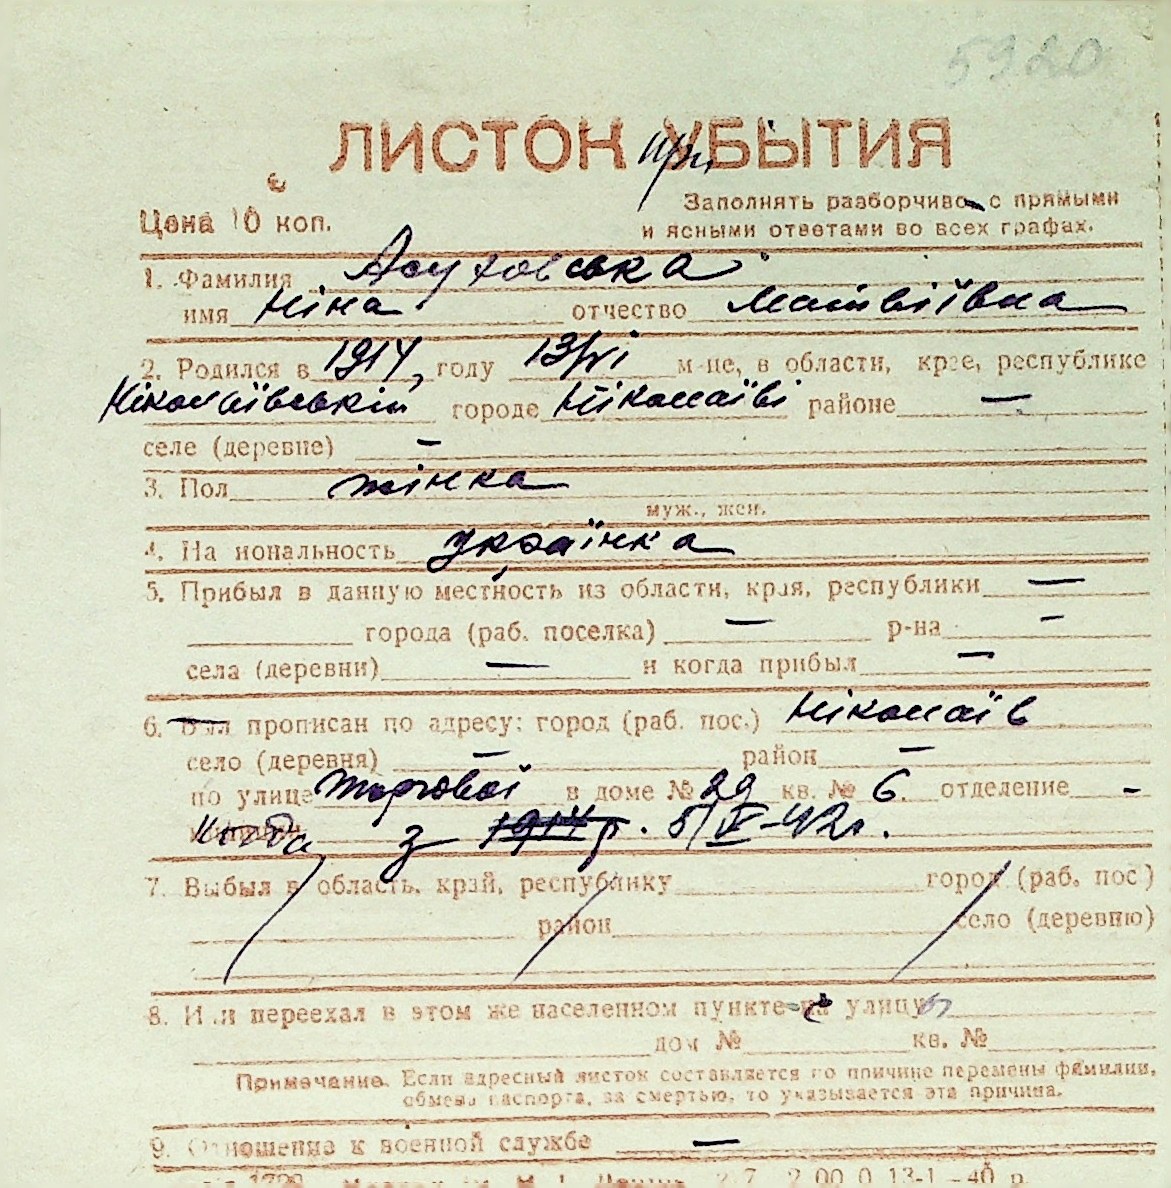 5920
ЛИСТОК УБЫТИЯ
При
Цена 10 коп.
Заполнять разборчиво с прямыми
и ясными ответами во всех графах.
1. Фамилия
имя Ніна отчество Матвіївна
2. Родился в 1914, году 13/VI м-це, в области, крае, республике
Ніколаївській городе Ніколаїві районе —
селе (деревне) —
3. Пол жінка
муж., жен.
4. Национальность українка
5. Прибыл в данную местность из области, края, республики —
города (раб. поселка) — р-на —
села (деревни) — и когда прибыл —
6. Был прописан по адресу: город (раб. пос.) Ніколаїв
село (деревня) — район —
по улице Торговой в доме № 29 кв. № 6. отделение —
Когда з 1914 р. 5/V-42г.
7. Выбыл в область, край, республику город (раб. пос.)
район село (деревню)
8. Или переехал в этом же населенном пункте на улицу
дом № кв. №
Примечание. Если адресный листок составляется по причине перемены фамилии,
обмена паспорта, за смертью, то указывается эта причина.
9. Отношение к военной службе —